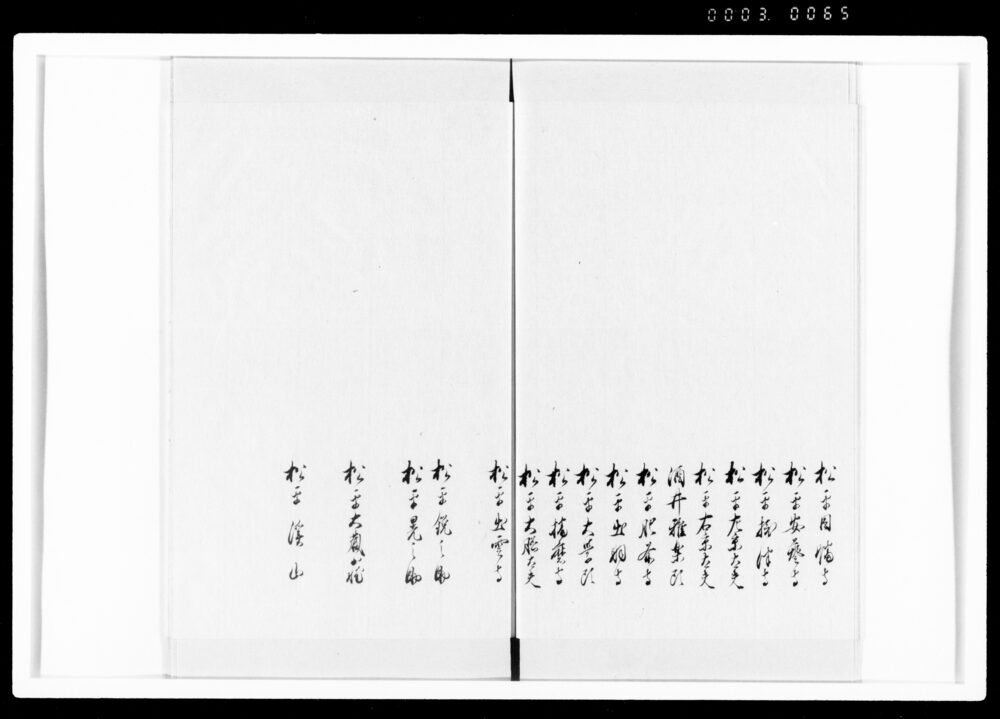 0003. 0065
松平因幡守
松平安藝守
松平摂津守
松平左京大夫
松平右京大夫
酒井雅楽頭
松平肥前守
松平出羽守
松平大学頭
松平播磨守
松平大膳大夫
松平出雲守
松平鋭之助
松平晃之助
松平大蔵大輔
松平溪山